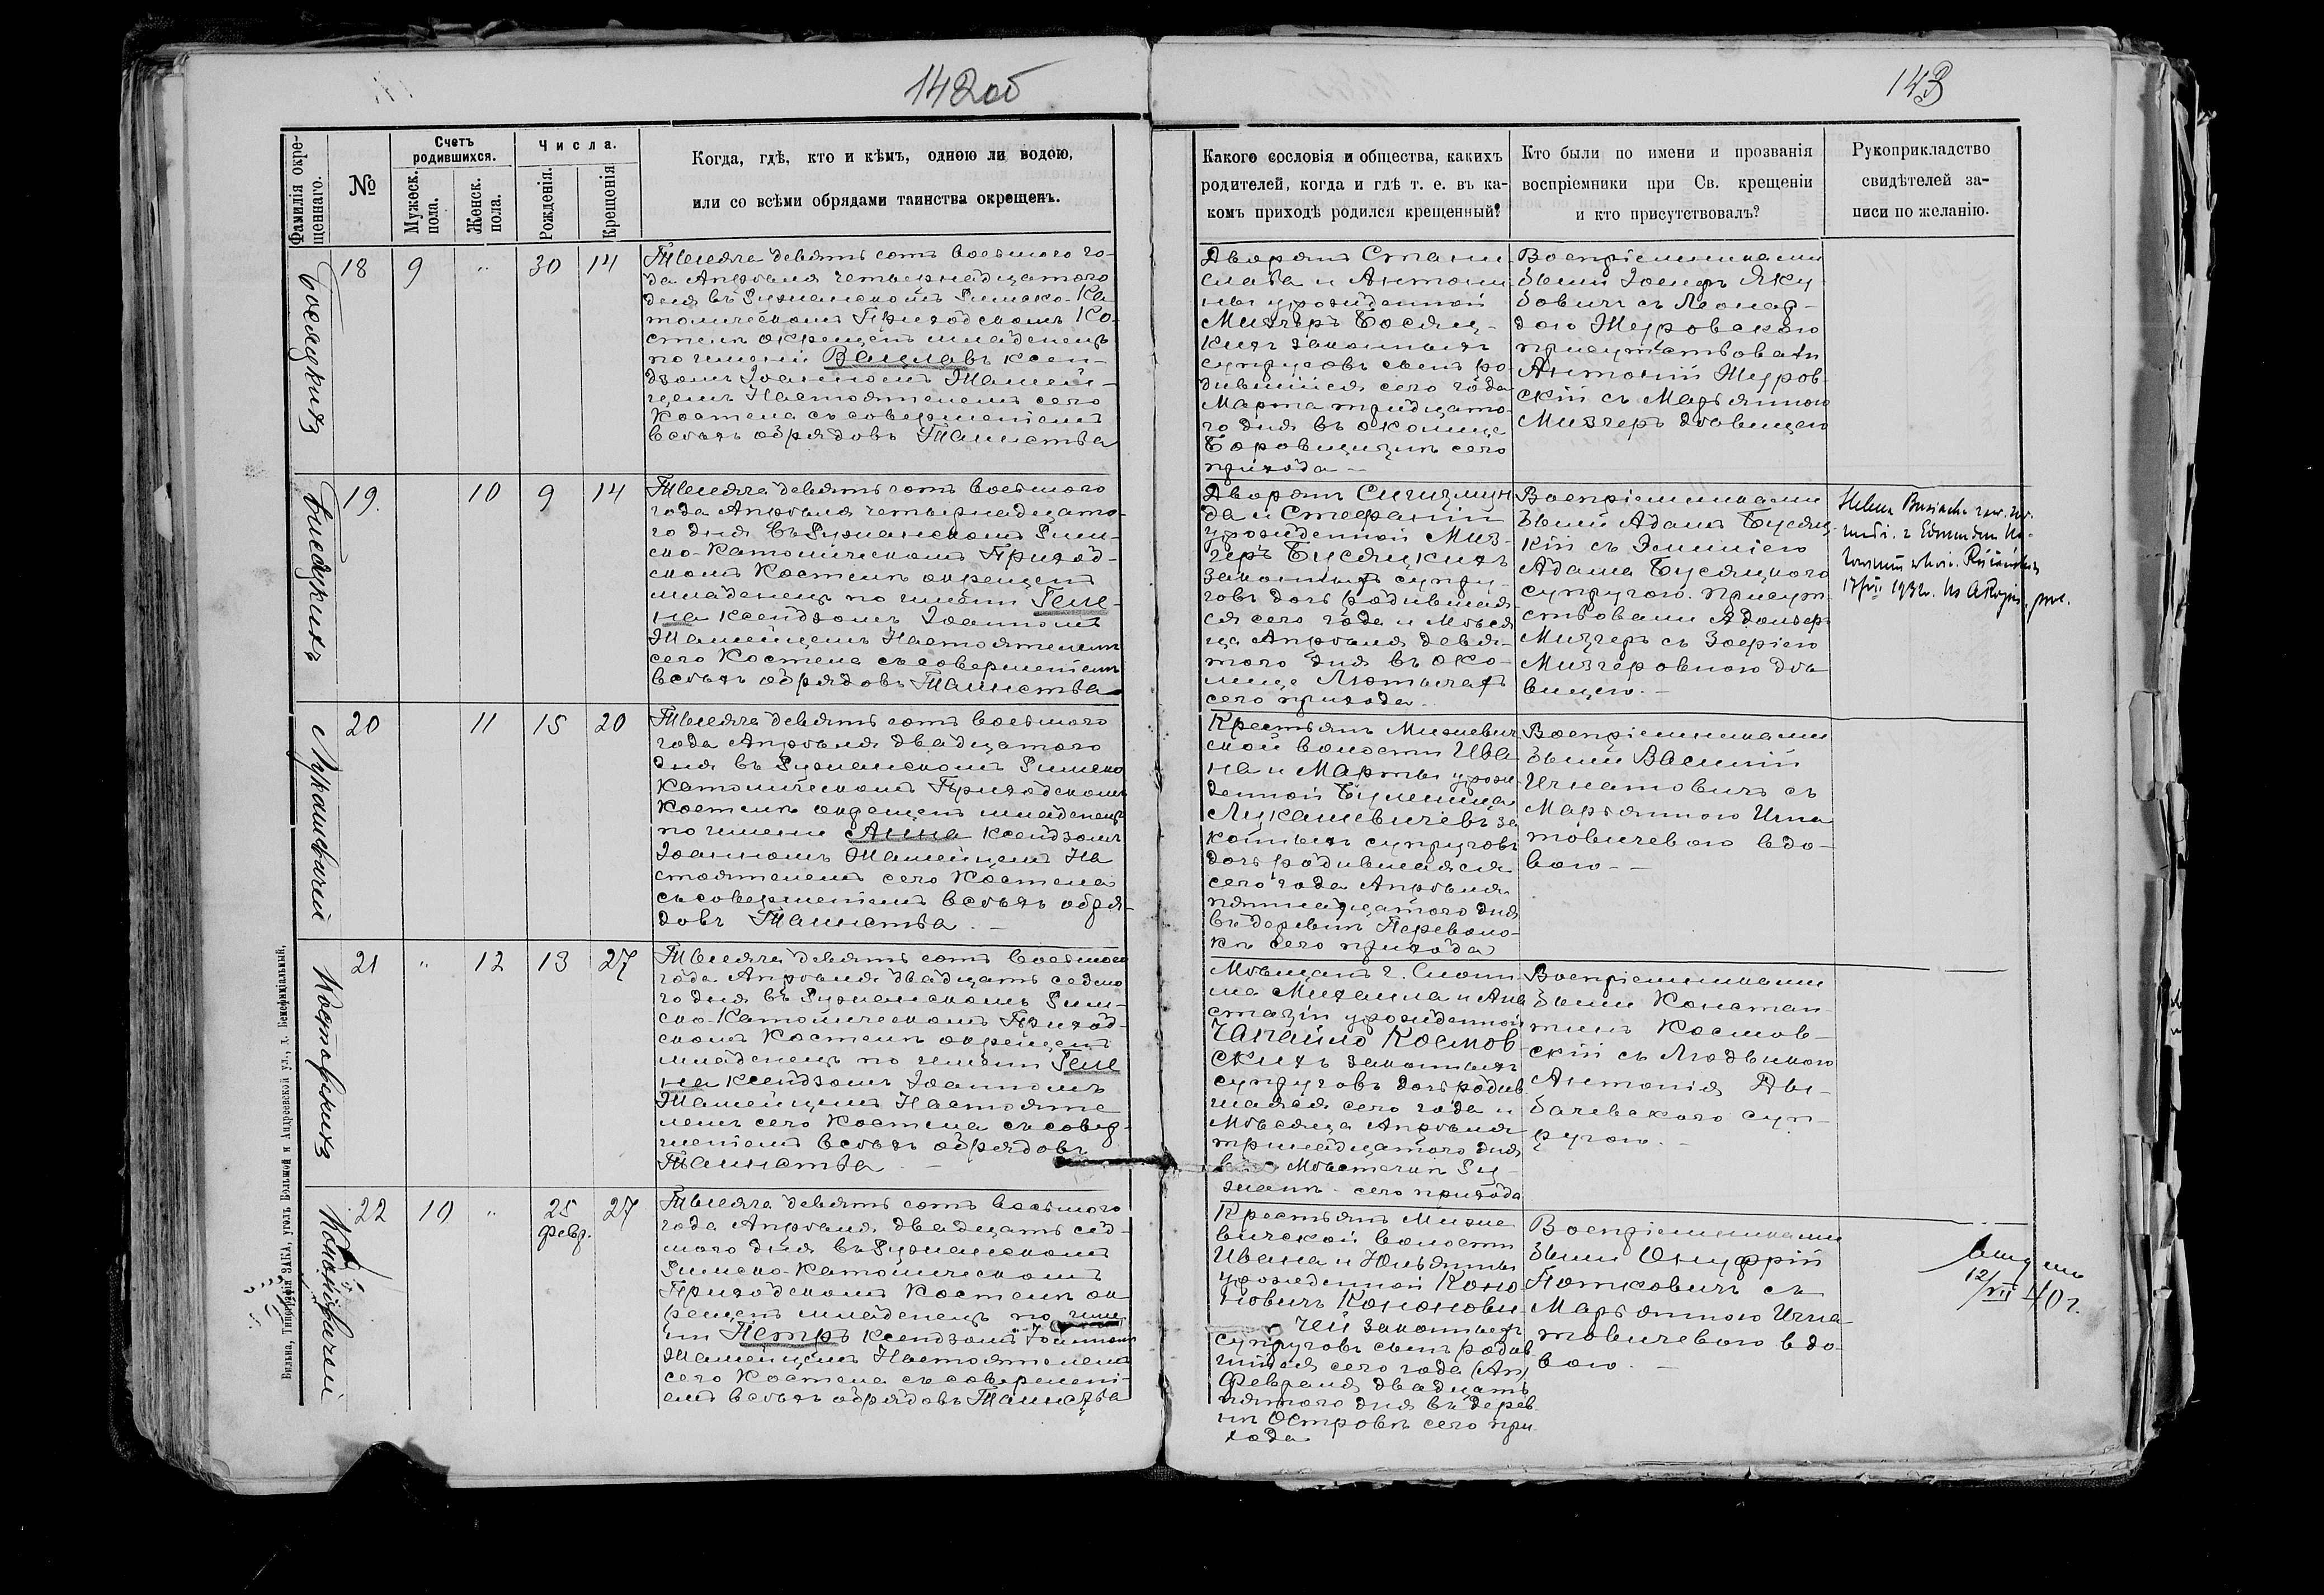 142об
143
Фамилія окре-
щеннаго.
№
Счетъ
родившихся.
Мужеск.
пола.
Женск.
пола.
Числа.
Рожденія.
Крещенія
Когда, гдѣ, кто и кѣмъ, одною ли водою,
или со всѣми обрядами таинства окрещенъ.
Какого сословія и общества, какихъ
родителей, когда и гдѣ т. е. въ ка-
комъ приходѣ родился крещенный?
Кто были по имени и прозванія
воспріемники при Св. крещеніи
и кто присутствовалъ?
Рукоприкладство
свидѣтелей за-
писи по желанію.
Босяцкихъ
18 9 " 30 14
Тысяча девять сотъ восьмого го-
да Апрѣля четырнадцатого
дня въ Ружанскомъ Римско-Ка
толическомъ Приходскомъ Ко-
стелѣ окрещенъ младенецъ
по имени Вацлавъ ксен-
дзомъ Іоанномъ
Настоятелемъ сего
Костела съ совершеніемъ
всѣхъ обрядовъ Таинства
Дворянъ Стани
слава и Антони
ны урожденной
Мизгеръ Босяц-
кихъ законныхъ
супруговъ сынъ ро
дившійся сего года
Марта тридцато-
го дня въ околице
Боровщизнѣ сего
прихода –
Воспріемниками
были Іосифъ Яку
бовичъ съ Леонар-
дою Журовскою
присутствовали
Антоній Журов-
скій съ Марьянною
Мизгеръ дѣвицею
Бусяцкихъ
19. 10 9 14
Тысяча девять сотъ восьмого
года Апрѣля четырнадцато-
го дня въ Ружанскомъ Рим-
ско-Католическомъ Приход-
скомъ Костелѣ окрещенъ
младенецъ по имени Геле-
на ксендзомъ Іоанномъ
Настоятелемъ
сего Костела съ совершеніемъ
всѣхъ обрядовъ Таинства
Дворянъ Сигизмун
да и Стефаніи
урожденной Миз-
геръ Бусяцкихъ
законныхъ супру-
говъ дочь родившая
ся сего года и Мѣся
ца Апрѣля девя-
того дня въ око-
лице
сего прихода.
Воспріемниками
были Адамъ Бусяц-
кій съ Эмиліею
Адама Бусяцкого
супругою. Присут-
ствовали Адольфъ
Мизгеръ съ Зофіею
Мизгеровною дѣ-
вицею. –
17/VII 1932.
Лукашевичей
20 11 15 20
Тысяча девять сотъ восьмого
года Апрѣля двадцатого
дня въ Ружанскомъ Римско
Католическомъ Приходскомъ
Костелѣ окрещенъ младенецъ
по имени Анна ксендзомъ
Іоанномъ На
стоятелемъ сего Костела
съ совершеніемъ всѣхъ обря-
довъ Таинства. –
Крестьянъ Мижевич
ской волости Ива
на и Марты урож-
денной
Лукашевичевъ за
конныхъ супруговъ
дочь родившаяся
сего года Апрѣля
пятнадцатого дня
въ деревнѣ Переволо-
кѣ сего прихода
Воспріемниками
были Василій
Игнатовичъ съ
Марьянною Игна
товичевою вдо-
вою. –
Костовскихъ
21 " 12 13 27
Тысяча девять сотъ восьмого
года Апрѣля двадцать седмо
го дня въ Ружанскомъ Рим-
ско-Католическомъ Приход-
скомъ Костелѣ окрещенъ
младенецъ по имени Геле
на ксендзомъ Іоанномъ
Настояте
лемъ сего Костела съ совер-
шеніемъ всѣхъ обрядовъ
Таинства. –
Мѣщанъ г. Слони
ма Михаила и Ана
стазіи урожденной
Костов-
скихъ законныхъ
супруговъ дочь родив
шаяся сего года и
Мѣсяца Апрѣля
тринадцатого дня
въ Мѣстечкѣ Ру-
жанѣ сего прихода
Воспріемниками
были Констан-
тинъ Костов-
скій съ Людвикою
Антонія Ды-
бачевского суп-
ругою. –
Кононовичей
22 10 " 25
февр. 27
Тысяча девять сотъ восьмого
года Апрѣля двадцать сед-
мого дня въ Ружанскомъ
Римско-Католическомъ
Приходскомъ Костелѣ ок-
рещенъ младенецъ по име
ни Петръ ксендзомъ Іоанномъ
Настоятелемъ
сего Костела съ совершені-
емъ всѣхъ обрядовъ Таинства
Крестьянъ Миже
вичской волости
Ивана и Юльянны
урожденной Коно
новичъ Кононови
чей законныхъ
супруговъ сынъ родив
шійся сего года (Ап)
Февраля двадцать
пятого дня въ дерев-
нѣ Островѣ сего при
хода
Воспріемниками
были Онуфрій
съ
Марьянною Игна-
товичевою вдо-
вою. –
12/VII 40 г.
Вильна, Типографія ЗАКА, уголъ Большой и Андреевской ул., д. Бенефиціальный.